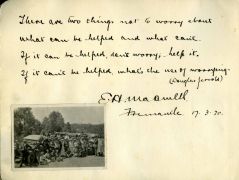 There are two things not to worry about
what can be helped and what can't.
If it can be helped, don't worry, help it.
If it can't be helped, what's the use of worrying –
(Douglas Jerrold)
Fremantle 17.3.20.